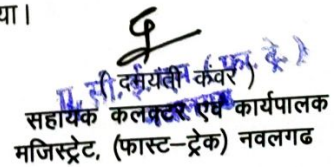 या।
( दमयंती कंवर )
सहायक कलक्टर एवं कार्यपालक
मजिस्ट्रेट, (फास्ट–ट्रेक) नवलगढ